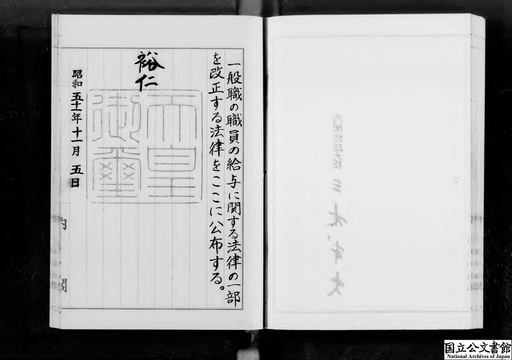 一般職の職員の給与に関する法律の一部
を改正する法律をここに公布する。
裕仁
天皇
御璽
昭和五十一年十一月五日
内閣
国立公文書館
National Archives of Japan